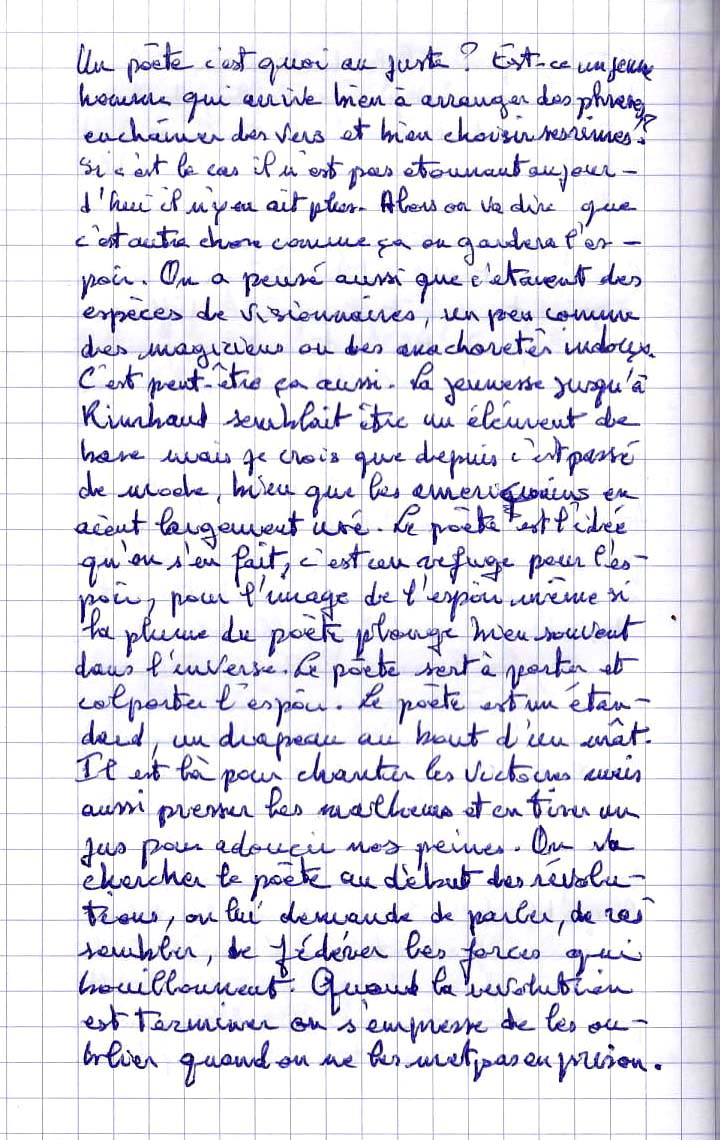 Un poète c'est quoi au juste ? Est-ce un jeune
homme qui arrive bien à arranger des phrases,
enchainer des vers et bien choisir ses rimes ?
Si c'est le cas il n'est pas etonnant aujour-
d'hui il n'y en ait plus. Alors on va dire que
c'est autre chose comme ça on gardera l'es-
poir. On a pensé aussi que c'étaient des
espèces de visionnaires, un peu comme
des magiciens ou des anachoretes indous.
C'est peut-être ça aussi. La jeunesse jusqu'à
Rimbaud semblait être un élément de
base mais je crois que depuis c'est passé
de mode, bien que les americains en
aient largement usé. Le poète est l'idée
qu'on s'en fait, c'est un refuge pour l'es-
poir, pour l'image de l'espoir même si
la plume du poète plonge bien souvent
dans l'inverse. Le poète sert à porter et
colporter l'espoir. Le poète est un étan-
dard, un drapeau au bout d'un mât.
Il est là pour chanter les victoires mais
aussi presser les malheurs et en tirer un
jus pour adoucir nos peines. On va
chercher le poète au début des révolu-
tions, on lui demande de parler, de ras
sembler, de fédérer les forces qui
bouillonnent. Quand la revolution
est terminer on s'empresse de les ou-
blier quand on ne les met pas en prison.